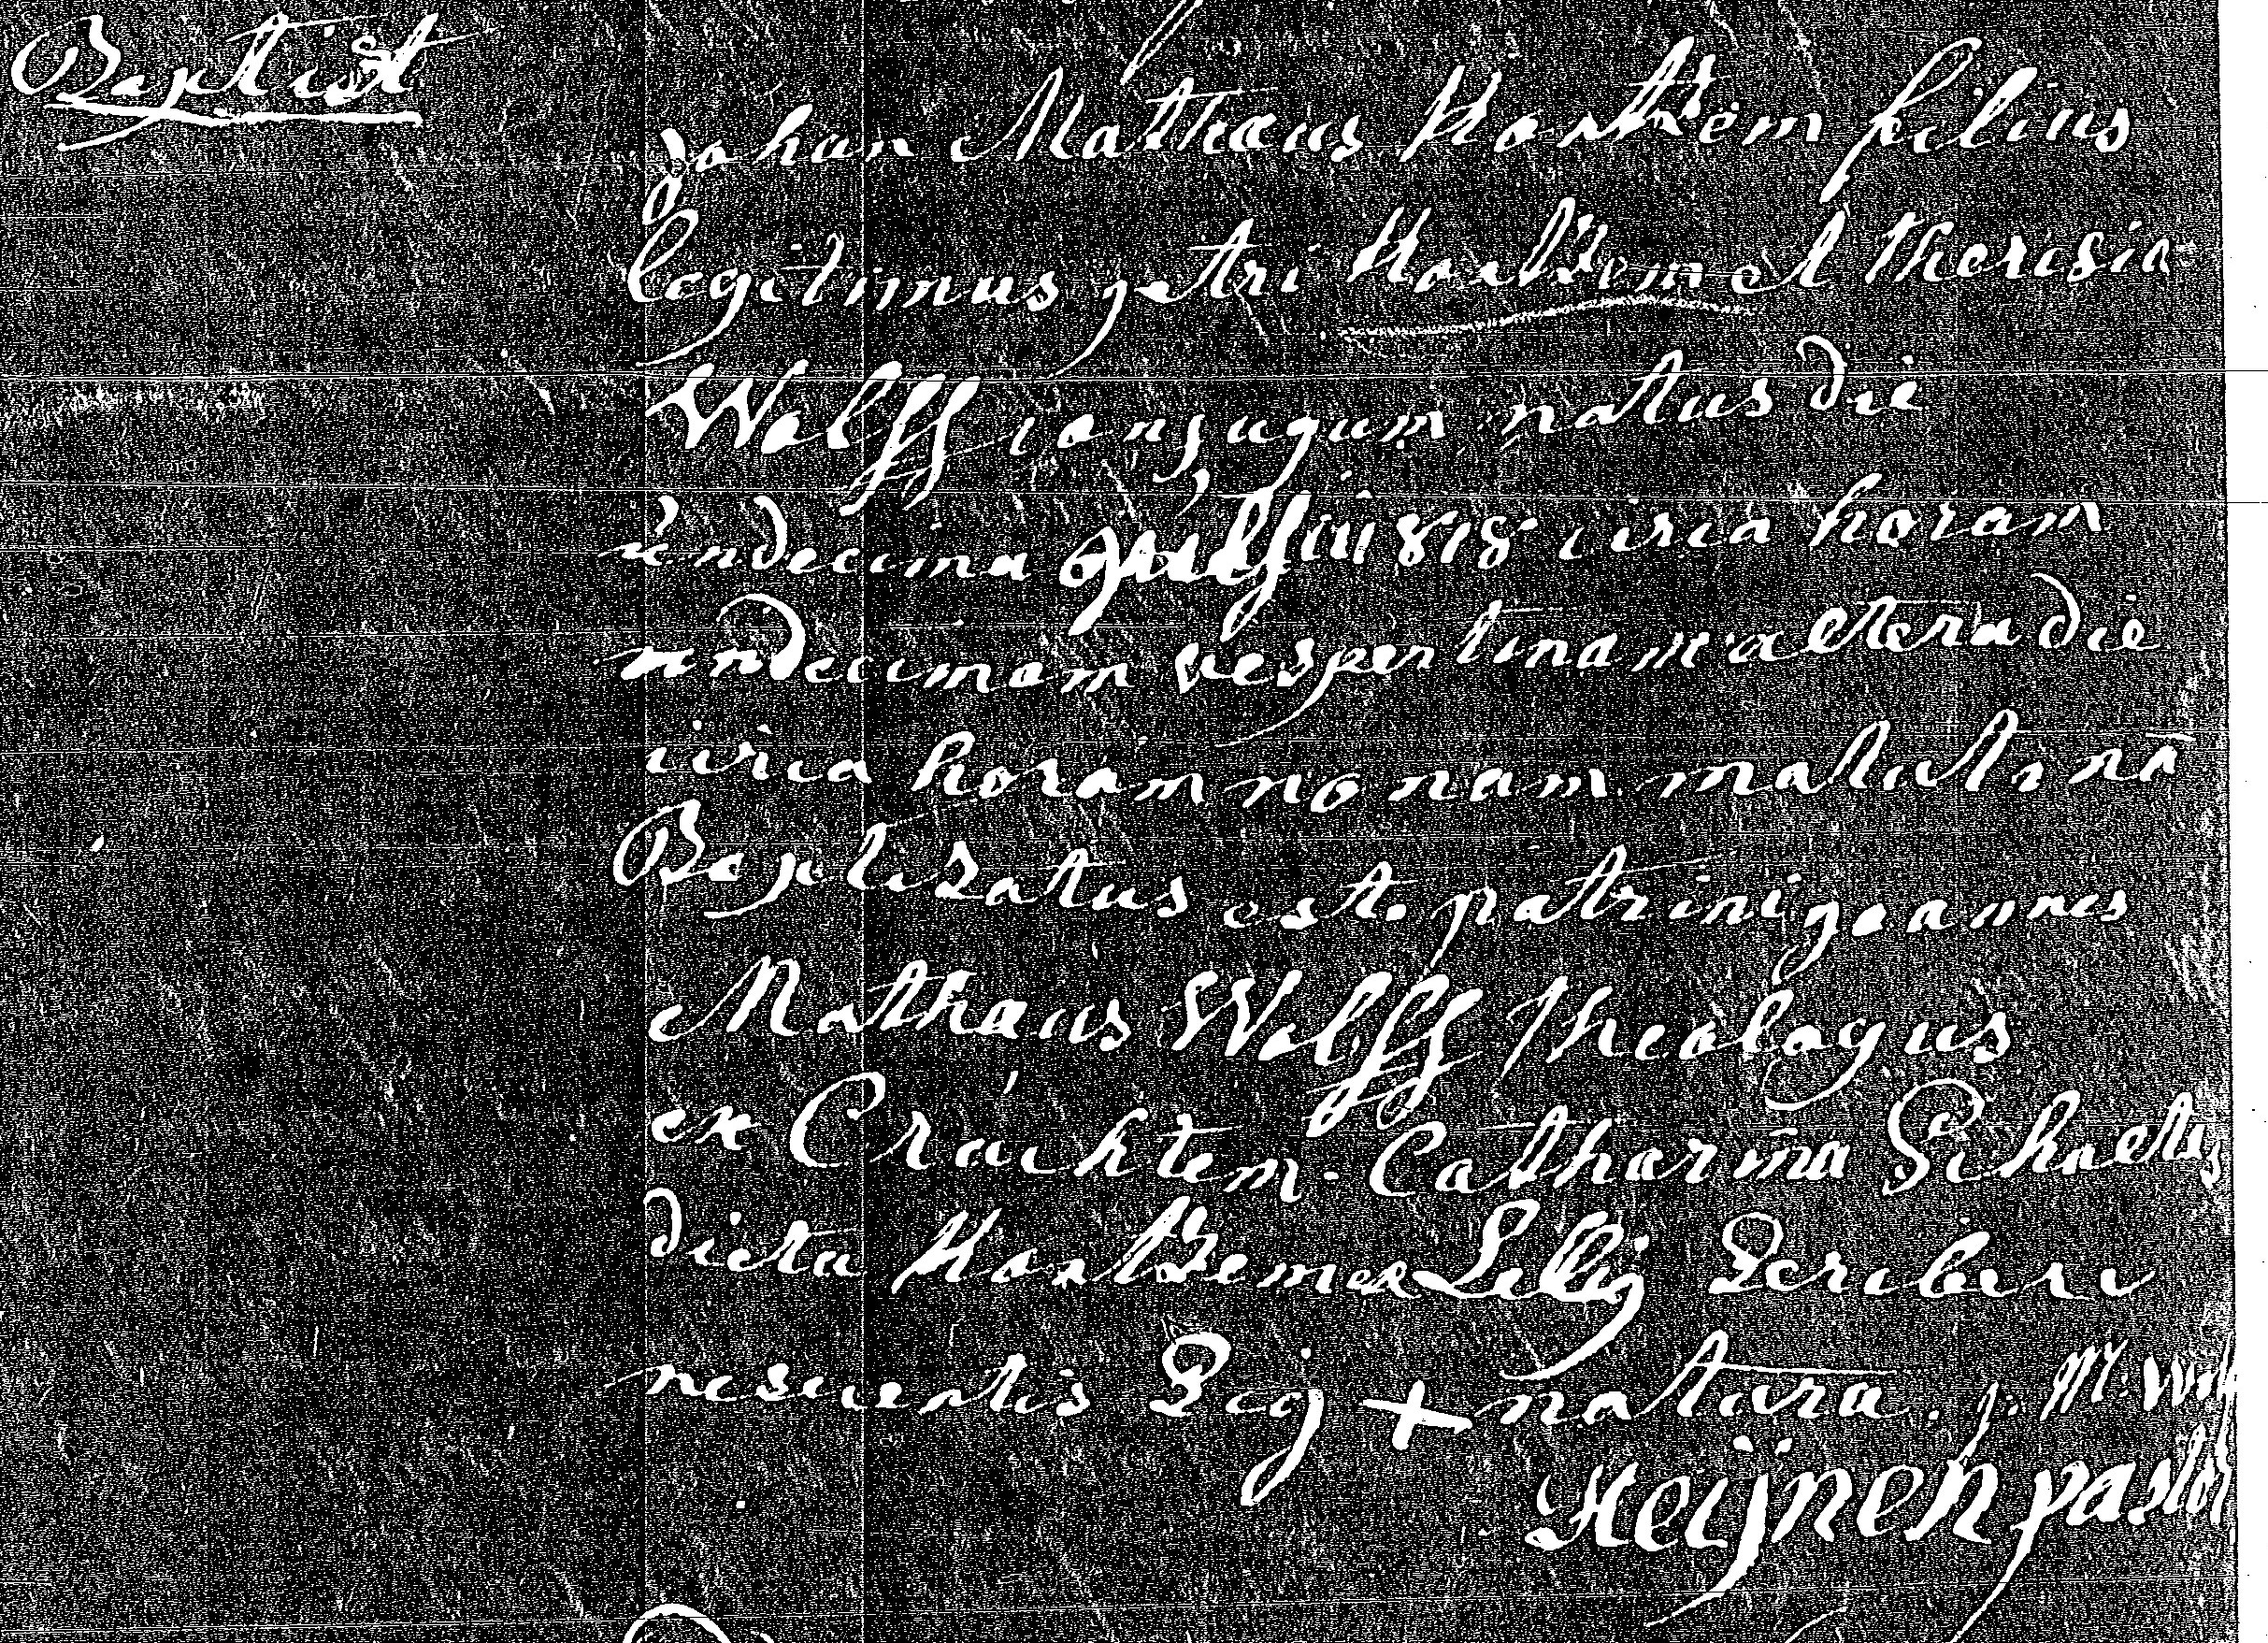 Baptist
Johan Mathæus Hartzem filius
legitimus petri Hartzem et Theresia
Wolff conjugum natus die
undecima julii 1818 circa horam
undecimam vespertinam altera die
circa horam nonam matutinā
Baptizatus est. patrini joannes
Mathæus Wolff Theologus
ex Cráchtem. Catharina
dicta Hartzem ex Scribere
nescientis Sig + natura. j: M: Wolff
Heijnen pastor